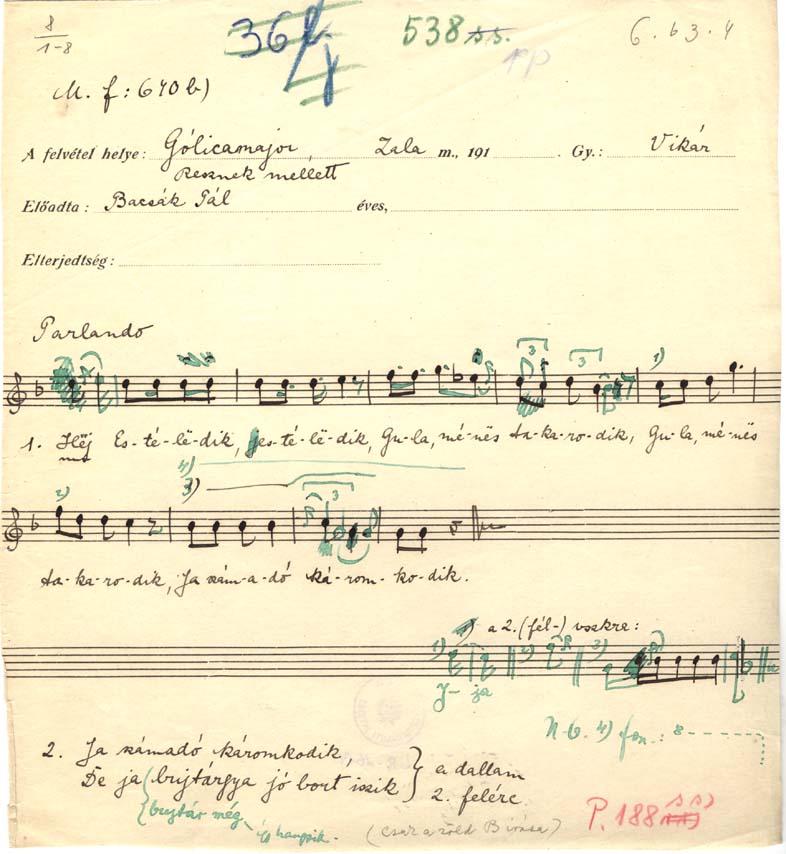 8
1-8
538
6.63.4
M. f: 670 b)
A felvétel helye: Gólicamajor, Zala m., 191 Gy.: Vikár
Resznek mellett
Előadta: Bacsák Pál éves,
Elterjedtség:
Parlando
3 3 1)
1. Hëj Es-té-lë-dik, es-té-lë-dik, Gu-la, mé-nës ta-ka-ro-dik, Gu-la, mé-nës
4)
2) 3) 3
ta-ka-ro-dik, Ja szám-a-dó ká-rom-ko-dik.
a 2. (fél-) vszkra:
1) 2) 3)
J- ja
N.B. 4) fon.: 8
2. Ja számadó káromkodik,
De ja bujtárgya jó bort iszik
a dallam
2. felére
bujtár még
P. 188